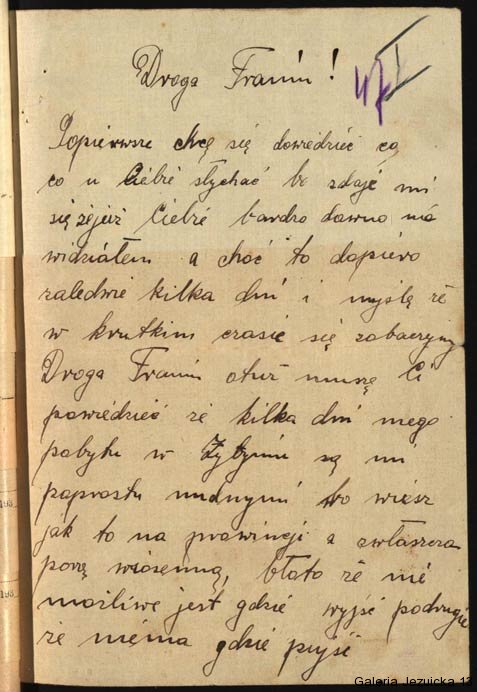 Droga Franiu!
Popierwsze chcę się dowiedzieć co
co u Ciebie słychać bo zdaje mi
się żejeż Ciebie bardzo dawno nie
widziałem a choć to dopiero
zaledwie kilka dni i myślę że
w krutkim czasie się zobaczymy
Droga Franiu otuż muszę Ci
powiedzieć że kilka dni mego
pobytu w są mi
poprostu nudnymi bo wiesz
jak to na prowincji a zwłaszcza
porę wiosenną, błoto że nie
możliwe jest gdzie wyjść podrugie
że niema gdzie pujść
193
193
Galeria Jezuicka 13